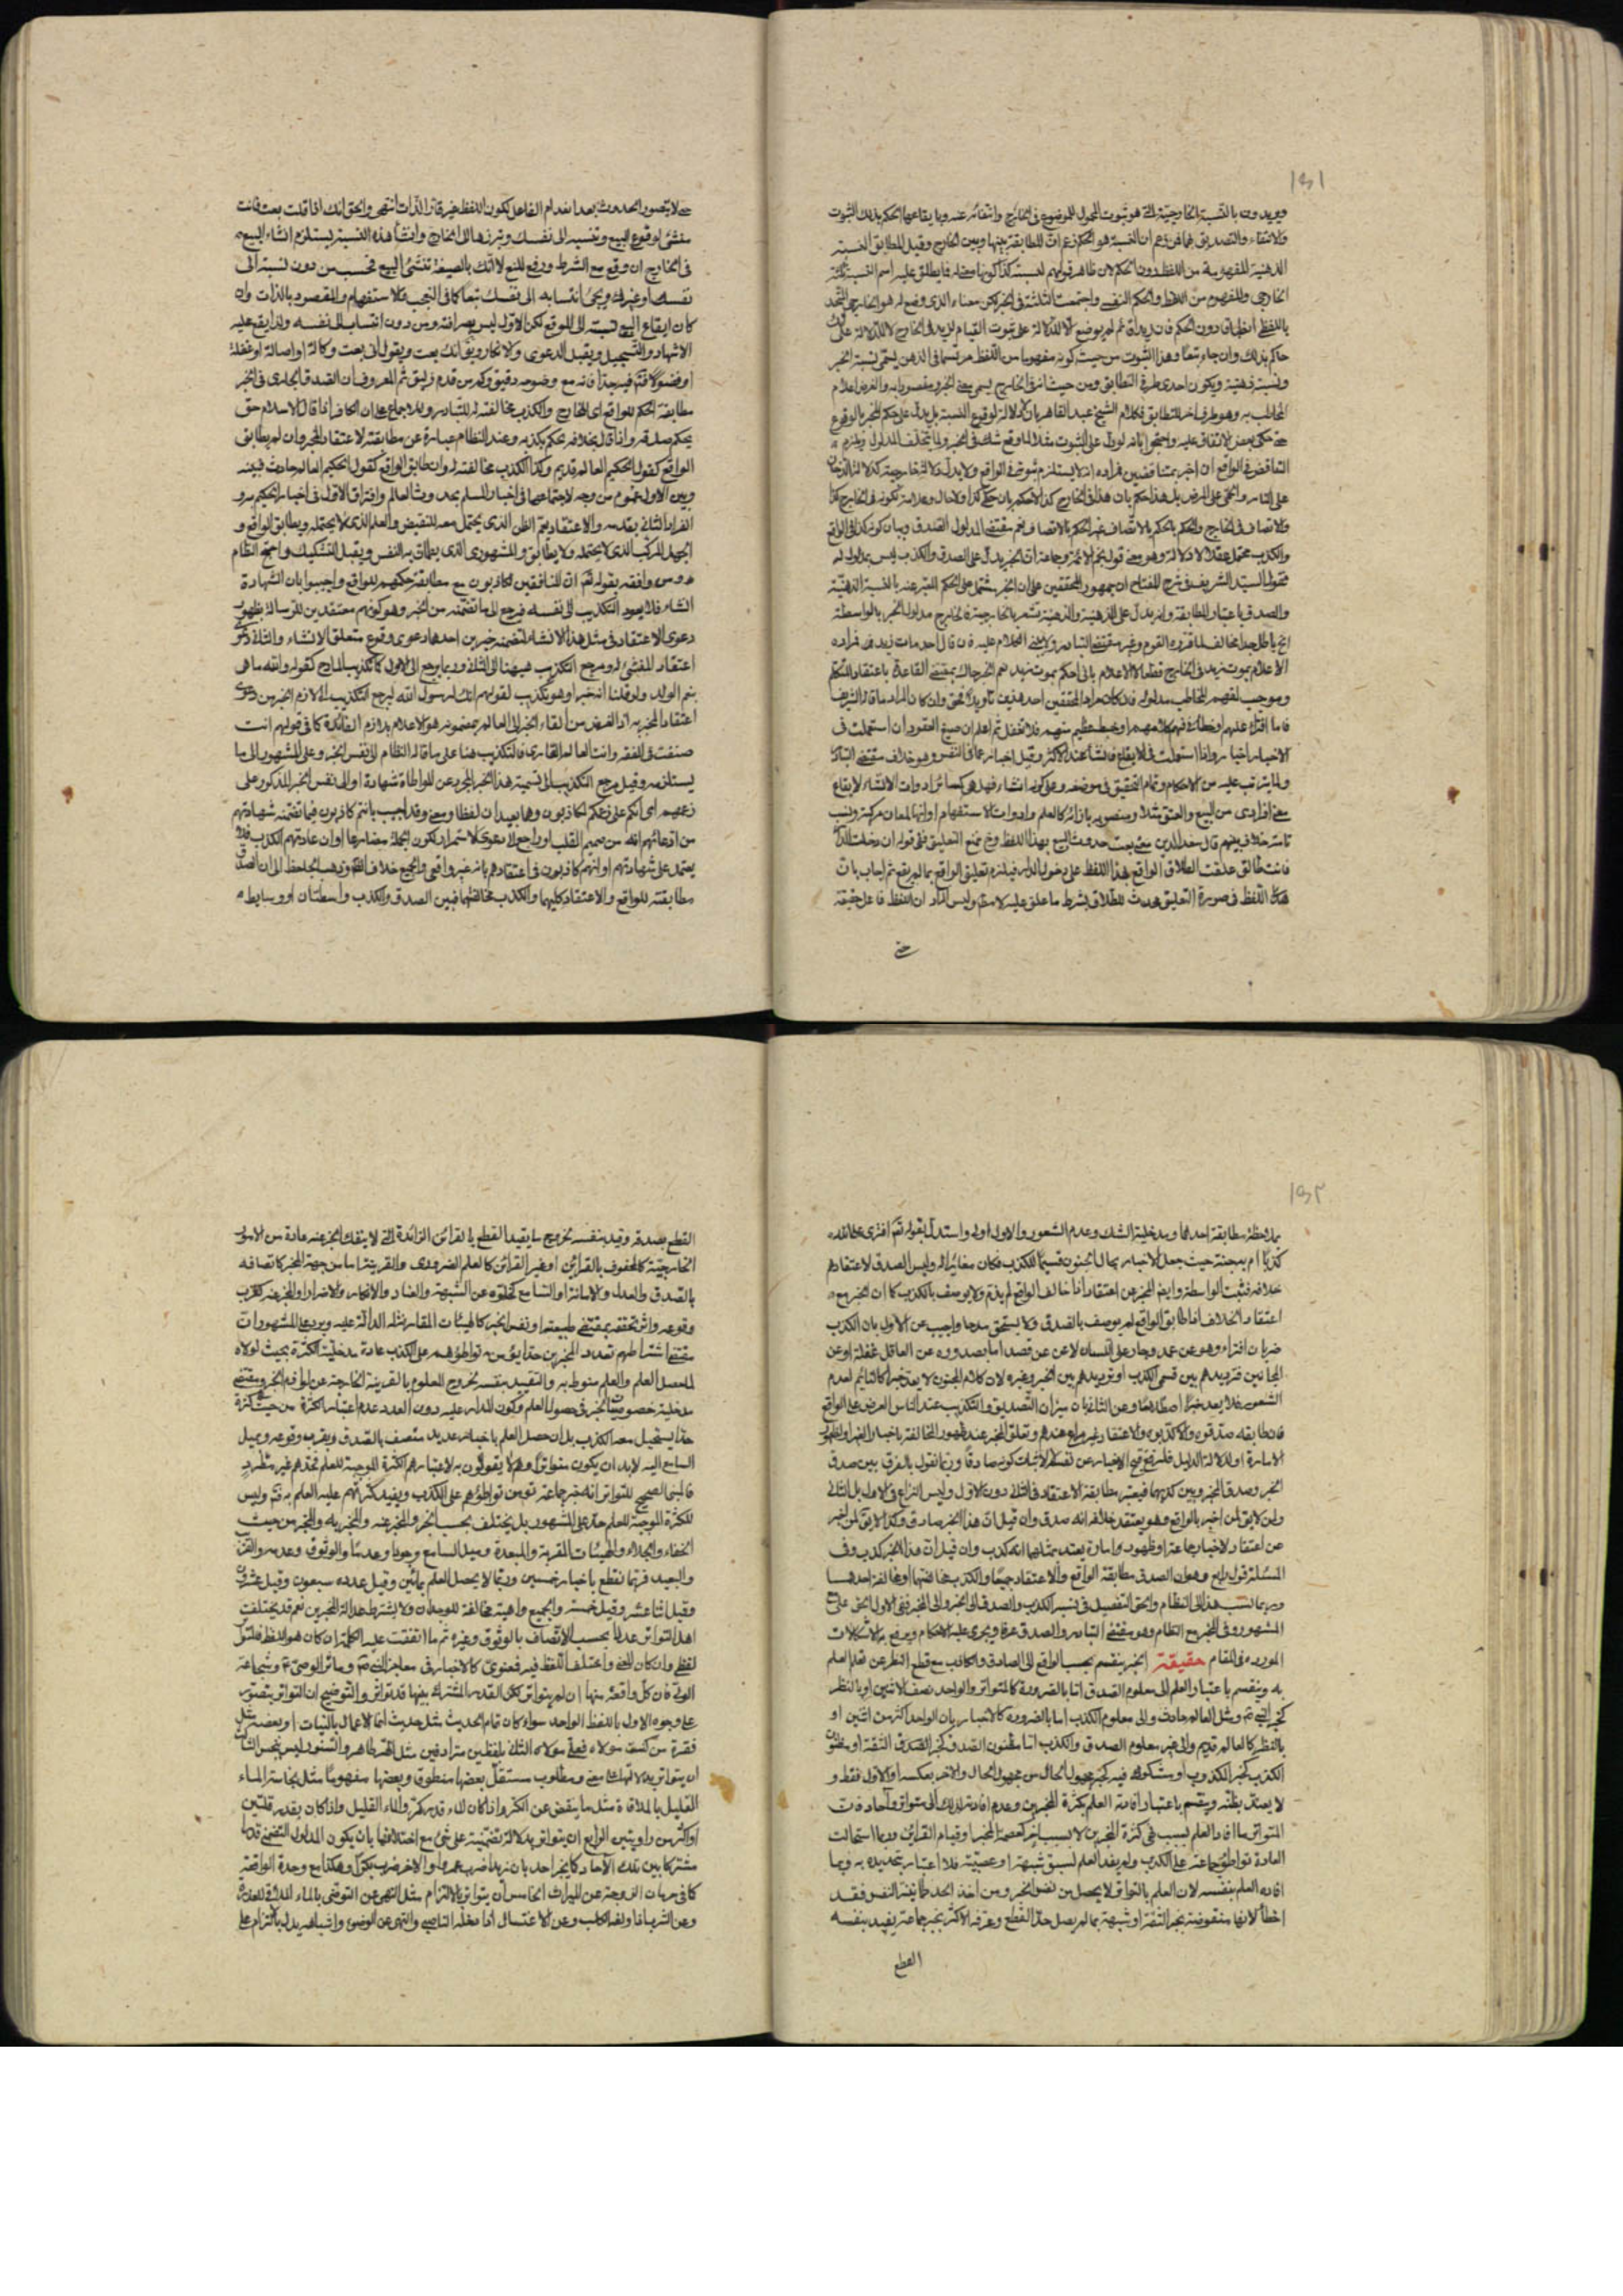 ١٥١
ويريدون بالنسبة الخارجية التي هو ثبوت المحمول للموضوع في الخارج وانتفائه عنه وبايقاعها الحكم بذلك الثبوت
والانتفاء والتصديق بهما فمن زعم ان النسبة هو الحكم زعم ان المطابقة بينها وبين الخارج وقيل المطابق النسبة
الذهنية المفهومة من اللفظ دون الحكم لان ظاهر قولهم
الخارجي والمفهوم من اللفظ والحكم النفسي واجتمعت الثلثة في الخبر لكن معناه الذي وضع له هو الخارجي المتحد
حاكم بذلك وان جاء تبعا وهذا الثبوت من حيث كونه مفهوما من اللفظ مرتسما في الذهن يسمى نسبة الخبر
ونسبة ذهنية ويكون احدى طرفي التطابق ومن حيث انه في الخارج يسمى معنى الخبر ومقصودا به والغرض اعلام
المخاطب به وهو طرف اخر للتطابق فكلام الشيخ عبد القاهر بان لا دلالة لوقوع النسبة بل يدل على حكم المخبر بالوقوع
حتى حكى بعض الاتفاق عليه واحتجوا بانه لو دل على الثبوت مثلا لما وقع شك في الخبر ولما يتخلف المدلول ويلزم
التناقض في الواقع ان اخبر بمتناقضين
على النار والحمى على المرض بل هذا حكم بان هذا في الخارج كذا
والكذب محتمل عقلا لا دلالة وهو معنى قول نجم الائمة وجماعة ان الخبر يدل على الصدق والكذب ليس بمدلول له
فقول السيد الشريف في شرح المفتاح ان جمهور المحققين على ان الخبر مشتمل على الحكم المعبر عنه بالنسبة الذهنية
والصدق باعتبار المطابقة وانه يدل على الذهنية والذهنية مشعر بالخارجية فالخارج مدلول الخبر بالواسطة
الاعلام بموت زيد في الخارج قطعا لا الاعلام باني احكم بموت زيد
فما افتراء عليهم او خطاء في فهم كلامهم او خبط عظيم منهم فلا تغفل ثم اعلم ان صيغ العقود ان استعملت في
الاخبار اخبار واذا استعملت في الايقاع فانشاء عند الاكثر وقيل اخبار عما في النفس وهو خلاف مقتضى التبادر
ولما يترتب عليه من الاحكام وتمام التحقيق في موضعه وعلى كونه انشاء فهل هي كسائر ادوات الانشاء لايقاع
معنى افرادى من البيع والعتق مثلا
تامة خلاف بينهم قال سعد الدين معنى بعت حدوث البيع بهذا اللفظ
فانت طالق علقت الطلاق الواقع بهذا اللفظ على دخول الدار فيلزم تعليق الواقع بما لم يقع ثم اجاب بان
هذا اللفظ في صورة التعليق محدث للطلاق بشرط ما علق عليه لا مطلقا وليس المراد ان اللفظ فاعل حقيقة
حتى
حتى لا يتصور الحدوث بعد انعدام الفاعل لكون اللفظ غير قار الذات انتهى والحق انك اذا قلت بعت فانت
منشئ لوقوع البيع وتنسبه الى نفسك وتبرزها الى الخارج وانشاء هذه النسبة يستلزم انشاء البيع
في الخارج ان وقع مع الشرط ورفع المنع لا انك بالصيغة تنشئ البيع فحسب من دون نسبة الى
نفسك او غيرك ويجئ انتسابه الى نفسك تبعا كما في التعجب والاستفهام والمقصود بالذات وان
كان ايقاع البيع
الاشهاد والتسجيل ويقبل الدعوى والانكار ويق انك بعت ويقول اني بعت وكالة او اصالة او غفلة
مطابقة الحكم للواقع اى الخارج والكذب مخالفته له للتبادر وللاجماع على ان الكافر اذا قال الاسلام حق
يحكم بصدقه واذا قال بخلافه يحكم بكذبه وعند النظام عبارة عن مطابقته لاعتقاد المخبر وان لم يطابق
الواقع كقول الحكيم العالم قديم وكذا الكذب مخالفته له وان طابق الواقع كقول الحكيم العالم حادث فبينه
وبين الاول عموم من وجه لاجتماعهما في اخبار المسلم بحدوث العالم وافتراق الاول في اخبار الحكيم به و
انفراد الثاني بقدمه والاعتقاد يعم الظن الذي يحتمل معه النقيض والعلم الذي لا يحتمله ويطابق الواقع و
الجهل المركب الذي لا يحتمله ولا يطابق والمشهوري الذي يطمئن به النفس ويقبل التشكيك واحتج النظام
ومن وافقه بقوله تعم ان المنافقين لكاذبون مع مطابقة حكمهم للواقع واجيبوا بان الشهادة
انشاء فلا يعود التكذيب الى نفسه فيرجع الى ما تضمنه من الخبر وهو كونهم معتقدين للرسالة بظهور
دعوى الاعتقاد في مثل هذا الانشاء لتضمنه خبرين احدهما دعوى وقوع متعلق الانشاء والثاني دعوى
اعتقاد المنشئ له ومرجع التكذيب هيهنا الى الثاني وربما يرجع الى الاول كالتكذيب المادح كقوله والله ما هي
بنعم الولد ولو قلنا انه خبرا وهو تكذيب لقولهم انك لرسول الله ليرجع التكذيب الى لازم الخبر من دعوى
اعتقاد المخبر به اذ الغرض من القاء الخبر الى العالم بمضمونه هو الاعلام بلازم الفائدة كما في قولهم انت
صنفت في الفقه وانت العالم القارى فالتكذيب هنا على ما قاله النظام الى نفس الخبر وعلى المشهور الى ما
يستلزمه وقيل مرجع التكذيب الى تسمية هذا الخبر المجرد عن المواطاة شهادة او الى نفس الخبر المذكور على
زعمهم اى انكم على زعمكم لكاذبون وهما بعيدان لفظا ومعنى وقد اجيب بانهم كاذبون فيما تضمنه شهادتهم
من ادعائهم انه من صميم القلب
يعتمد على شهادتهم او انهم كاذبون في اعتقادهم بانه غير واقعي والجميع خلاف الظاهر وذهب الجاحظ الى ان الصدق
مطابقته للواقع والاعتقاد كليهما والكذب مخالفتهما فبين الصدق والكذب واسطتان او وسايط
١٥٢
بملاحظة مطابقة احدهما ومدخلية الشك وعدم الشعور والاول اولى واستدل بقوله تعم افترى على الله
كذبا ام به جنة حيث جعل الاخبار بحال الجنون قسيما للكذب فكان مغايرا له وليس الصدق لاعتقادهم
خلافه فثبت الواسطة وايض المخبر عن اعتقاد اذا خالف الواقع لم يذم ولا يوصف بالكذب كما ان المخبر مع
اعتقاد الخلاف اذا طابق الواقع لم يوصف بالصدق ولا يستحق مدحا واجيب عن الاول بان الكذب
ضربان افتراء وهو عن عمد وجار على اللسان لا عن عن قصد اما بصدوره عن العاقل غفلة او عن
المجانين فترديدهم بين قسمي الكذب او ترديدهم بين الخبر وغيره لان كلام المجنون لا يعد خبرا كالنائم لعدم
الشعور فلا يعد خبرا اصطلاحا وعن الثاني بان ميزان التصديق والتكذيب عند الناس العرض على الواقع
فان طابقه صدقوه والا كذبوه والاعتقاد غير مراعى عندهم
الامارة او لدلالة الدليل
الخبر وصدق المخبر وبين كذبهما فيعتبر مطابقة الاعتقاد في الثاني دون الاول وليس النزاع في الاول بل الثاني
ولذا يق لمن اخبر بالواقع وهو يعتقد خلافه انه صدق وان قيل ان هذا الخبر صادق وكذا لا يق لمن اخبر
عن اعتقاد لاخبار جماعة او ظهور امارة يعتد بمثلها انه كذب وان قيل ان هذا الخبر كذب وفي
المسئلة قول رابع وهو ان الصدق مطابقة الواقع والاعتقاد جميعا والكذب مخالفتهما او مخالفة احدهما
وربما نسب هذا الى النظام والحق التفصيل في نسبة الكذب والصدق الى الخبر والى المخبر ففي الاول الحق على مع
المشهور وفي المخبر مع النظام وهو مقتضى التبادر والصدق عرفا ويجرى عليه الاحكام ويرفع به الاشكالات
الموردة في المقام حقيقة الخبر ينقسم بحسب الواقع الى الصادق والكاذب مع قطع النظر عن تعلق العلم
به وينقسم باعتبار العلم الى معلوم الصدق اما بالضرورة كالمتواتر والواحد نصف الاثنين او بالنظر
كخبر الله تعم ومثل العالم حادث والى معلوم الكذب اما بالضرورة كالاخبار بان الواحد اكثر من اثنين او
بالنظر كالعالم قديم والى غير معلوم الصدق والكذب اما مظنون الصدق كخبر الصدق الثقة او مظنون
الكذب كخبر الكذوب او مشكوك فيه كخبر مجهول الحال
لا يعتنى بظنه وينقسم باعتبار افادته العلم بكثرة المخبرين وعدم افادته لذلك الى متواتر وآحاد فان
المتواتر ما افاد العلم بسبب في كثرة المخبرين لا بسبب اخر كعصمة المخبر او قيام القرائن وربما استحالت
العادة تواطؤ جماعة على الكذب ولم يفد العلم لسبق شبهة او عصبية فلا اعتبار بتحديده به وبما
افاد العلم بنفسه لان العلم بالتواتر لا يحصل من نفس الخبر ومن اخذ الحد طمانينة النفس فقد
اخطأ لانها منقوضة بخبر الثقة او شبهة بما لم يصل حد القطع وعرفه الاكثر بخبر جماعة يفيد بنفسه
القطع
القطع بصدقه وقيد بنفسه ليخرج ما يفيد القطع بالقرائن الزائدة التي لا ينفك الخبر عنه عادة من الامور
الخارجية كالمحفوف بالقرائن او بغير القرائن كالعلم الضرورى والقرينة اما من جهة المخبر كاتصافه
بالصدق والعدل والامانة او السامع كخلوه عن الشبهة والعناد والانكار والاضرار او المخبر عنه كقرب
وقوعه واثر تحققه بمقتضى طبيعته او نفس الخبر كالهيئات المقارنة له الدالة عليه ويرد على المشهور ان
مقتضى اشتراطهم تعدد المخبرين حدا يؤمن به تواطؤهم على الكذب عادة مدخلية الكثرة بحيث لولاه
لما حصل العلم والعلم منوط به والتقييد بنفسه لخروج المعلوم بالقرينة الخارجة عن لوازم الخبر ومقتضى
مدخلية خصوصيات الخبر في حصول العلم وكون المدار عليه دون العدد عدم اعتبار الكثرة من حيث كثرة
حتى يستحيل معه الكذب بل ان حصل العلم باخبار عديد متصف بالصدق وبقرب وقوعه وبميل
السامع اليه لابد ان يكون متواترا وهم لا يقولون به لاعتبارهم الكثرة الموجبة للعلم فحدهم غير مطرد
فالمبنى الصحيح للتواتر انه خبر جماعة تؤمن تواطؤهم على الكذب ويفيد كثرتهم عليه العلم به ثم وليس
للكثرة الموجبة للعلم حد على المشهور بل يختلف بحسب الخبر والمخبر عنه والمخبر به والمخبر من حيث
الخفاء والجلاء والهيئات المقربة والمبعدة وميل السامع وجودا وعدما والوثوق وعدمه والقرب
والبعيد فربما نقطع باخبار خمسين وربما لا يحصل العلم بمأتين وقيل عدده سبعون وقيل عشرون
وقيل اثنا عشر وقيل خمسة والجميع واهية مخالفة للوجدان ولا يشترط عدالة المخبرين نعم قد يختلف
اهل التواتر عددا بحسب الاتصاف بالوثوق وغيره ثم ما اتفقت عليه الكلمة ان كان هو اللفظ فمتواتر
لفظي وان كان المعنى واختلف اللفظ فيه فمعنوى كالاخبار في معاجز النبي ص وماثر الوصي ع وشجاعة
الولي فان كل واقعة منها ان لم يتواتر لكن القدر المشترك بينها قد تواتر والتوضيح ان التواتر يتصور
على وجوه الاول باللفظ الواحد سواء كان تمام الحديث مثل حديث انما الاعمال بالنيات او بعضه مثل
فقرة من كنت مولاه فعلي مولاه الثاني بلفظين مترادفين مثل الهر طاهر والسنور ليس بنجس الثالث
ان يتواتر بدلالتها على معنى ومطلوب مستقل بعضها منطوق وبعضها مفهوما مثل نجاسة الماء
القليل بالملاقاة مثل ما ينقض عن الكر واذا كان الماء قدر كر والماء القليل واذا كان بقدر قلتين
او اكثر من راويتين الرابع ان يتواتر بدلالة تضمنية على شئ مع اختلافها بان يكون المدلول التضمني قدرا
مشتركا بين تلك الآحاد كأن يخبر احد بان زيدا ضرب عمروا والاخر ضرب بكرا وهكذا مع وحدة الواقعة
كما في حرمان الزوجة عن الميراث الخامس ان يتواتر بالالتزام مثل النهي عن التوضي بالماء
وعن الشرب اذا ولغه الكلب وعن الاغتسال اذا دخله الناصبي والنهي عن الوضوء واشباهه يدل بالتزام على